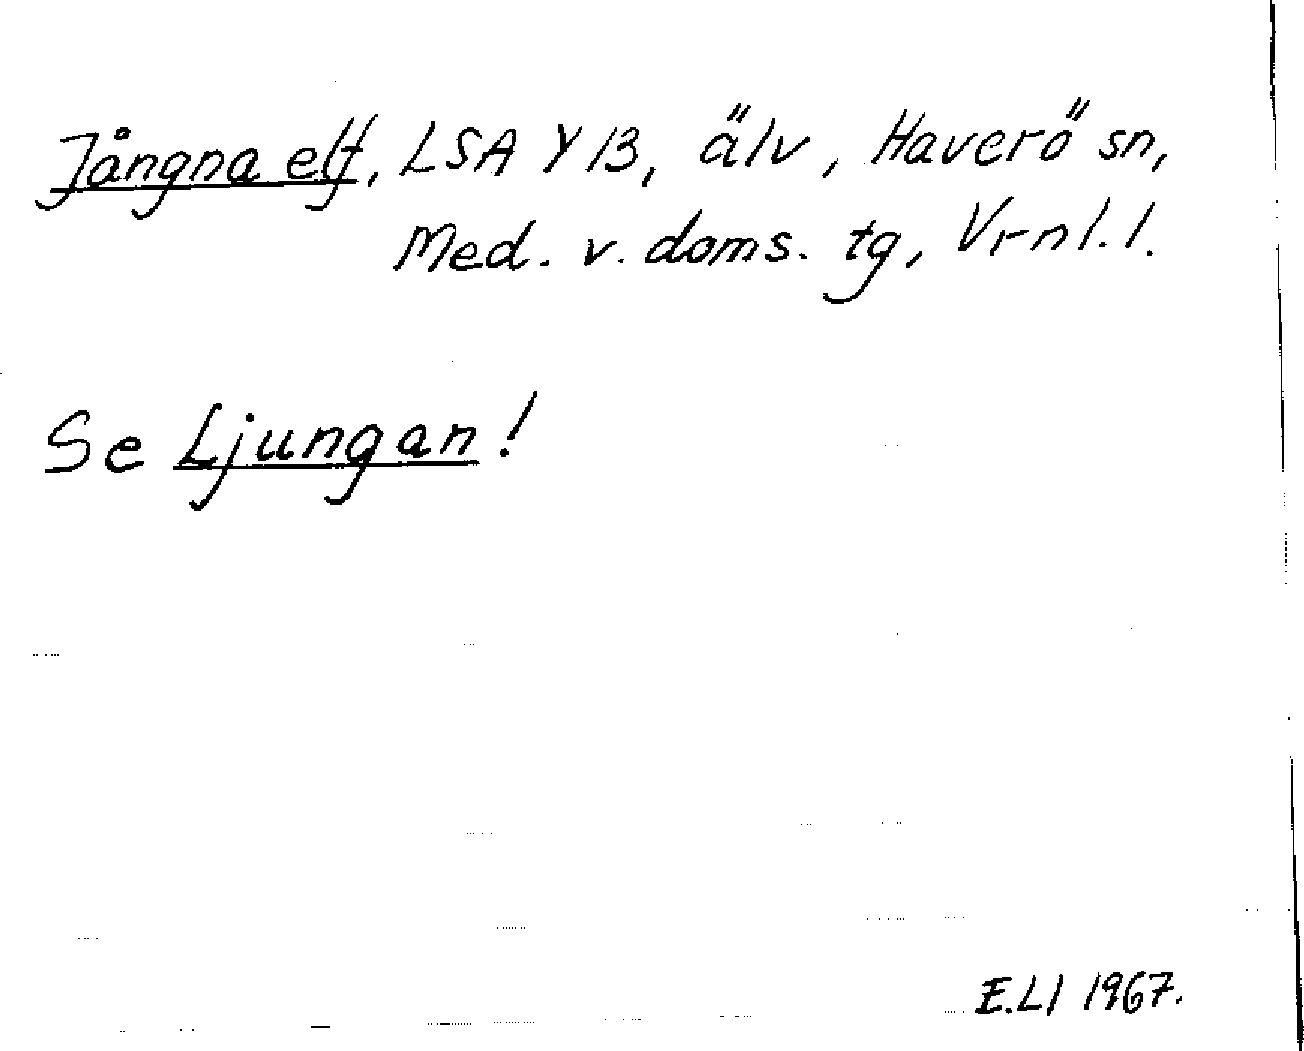 Jångna elf, LSA Y13, älv, Haverö sn,
Med. v. doms. tg, Vrnl. l.
Se Ljungan!
E.LI 1967.